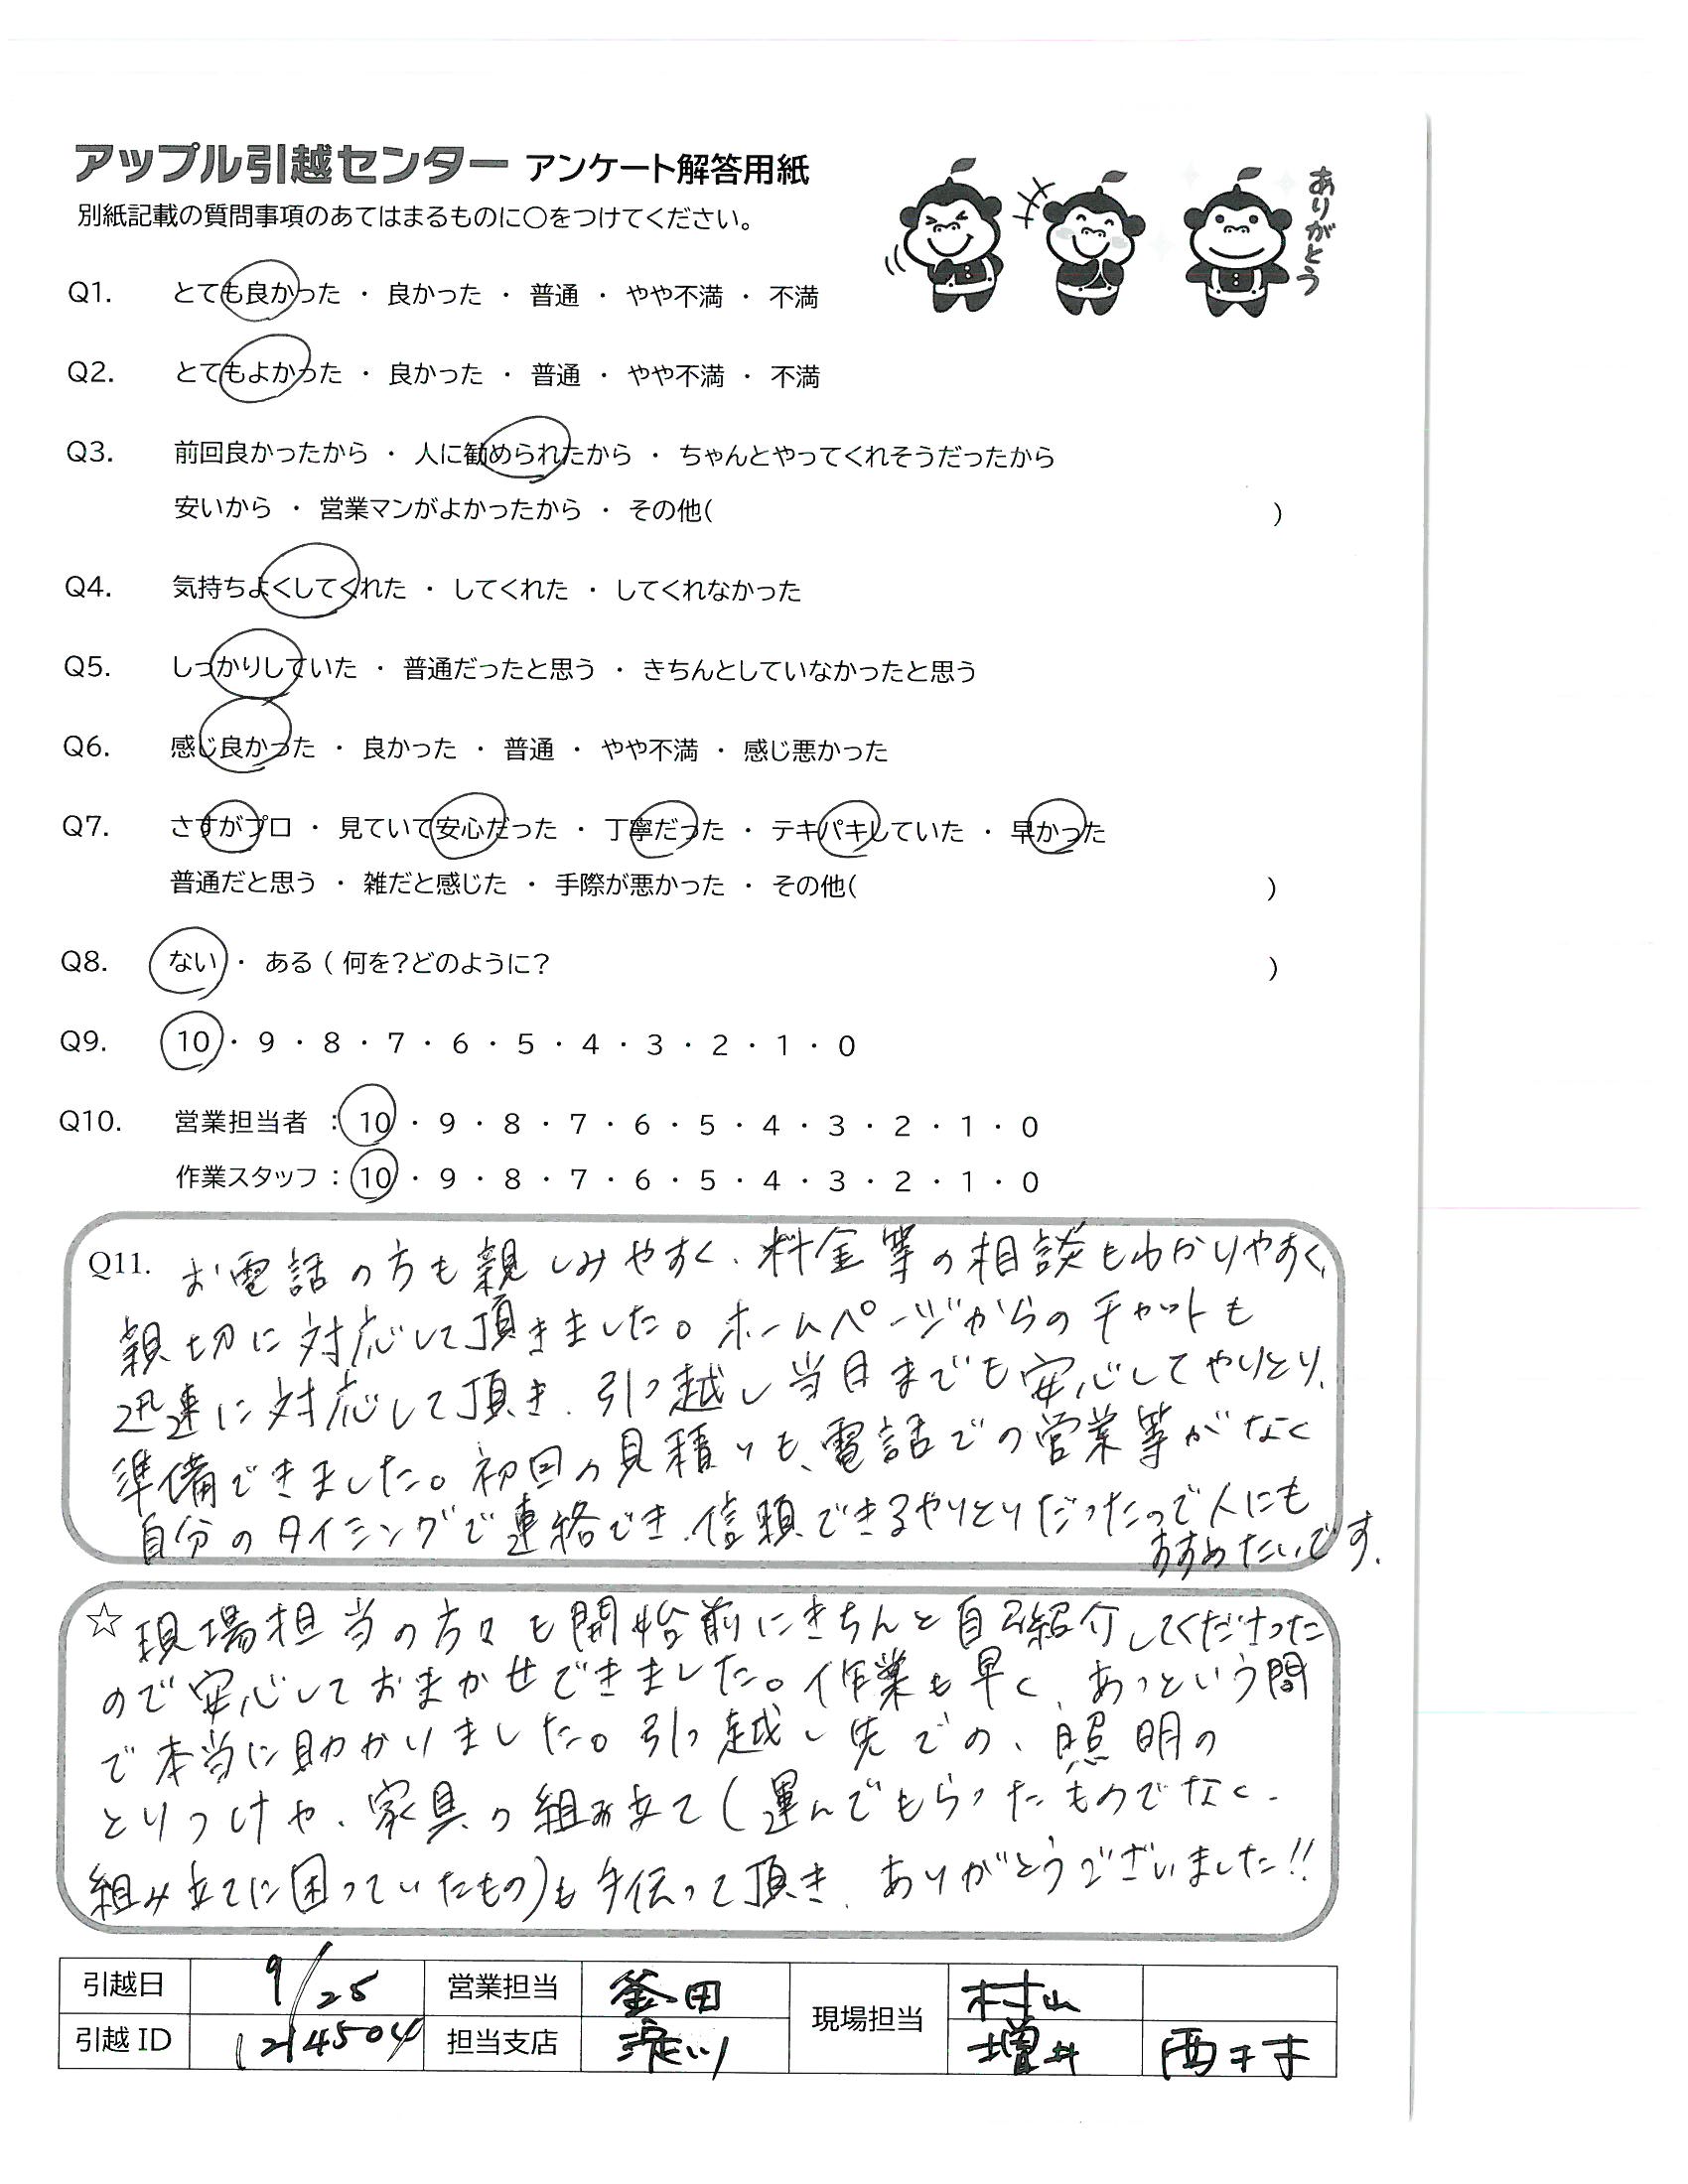 アップル引越センター アンケート解答用紙
ありがとう
別紙記載の質問事項のあてはまるものに〇をつけてください。
Q1. とても良かった ・ 良かった ・ 普通 ・ やや不満 ・ 不満
Q2. とてもよかった ・ 良かった ・ 普通 ・ やや不満 ・ 不満
Q3. 前回良かったから ・ 人に勧められたから ・ ちゃんとやってくれそうだったから
安いから ・ 営業マンがよかったから ・ その他( )
Q4. 気持ちよくしてくれた ・ してくれた ・ してくれなかった
Q5. しっかりしていた ・ 普通だったと思う ・ きちんとしていなかったと思う
Q6. 感じ良かった ・ 良かった ・ 普通 ・ やや不満 ・ 感じ悪かった
Q7. さすがプロ ・ 見ていて安心だった ・ 丁寧だった ・ テキパキしていた ・ 早かった
普通だと思う ・ 雑だと感じた ・ 手際が悪かった ・ その他( )
Q8. ない ・ ある ( 何を?どのように? )
Q9. 10 ・ 9 ・ 8 ・ 7 ・ 6 ・ 5 ・ 4 ・ 3 ・ 2 ・ 1 ・ 0
Q10. 営業担当者 : 10 ・ 9 ・ 8 ・ 7 ・ 6 ・ 5 ・ 4 ・ 3 ・ 2 ・ 1 ・ 0
作業スタッフ : 10 ・ 9 ・ 8 ・ 7 ・ 6 ・ 5 ・ 4 ・ 3 ・ 2 ・ 1 ・ 0
Q11. お電話の方も親しみやすく、料金等の相談もわかりやすく、
親切に対応して頂きました。ホームページからのチャットも
迅速に対応して頂き、引っ越し当日までも安心してやりとり、
準備できました。初回の見積りも、電話での営業等がなく
自分のタイミングで連絡でき、信頼できるやりとりだったので人にも
おすすめたいです。
☆ 現場担当の方々も開始前にきちんと自己紹介してくださった
ので安心しておまかせできました。作業も早く、あっという間
で本当に助かりました。引っ越し先での、照明の
とりつけや、家具の組み立て(運んでもらったものでなく、
組み立てに困っていたもの)も手伝って頂き、ありがとうございました!!
引越日 9/25 営業担当 釜田 現場担当 村山
引越ID 1214504 担当支店 淀川 増井 西村